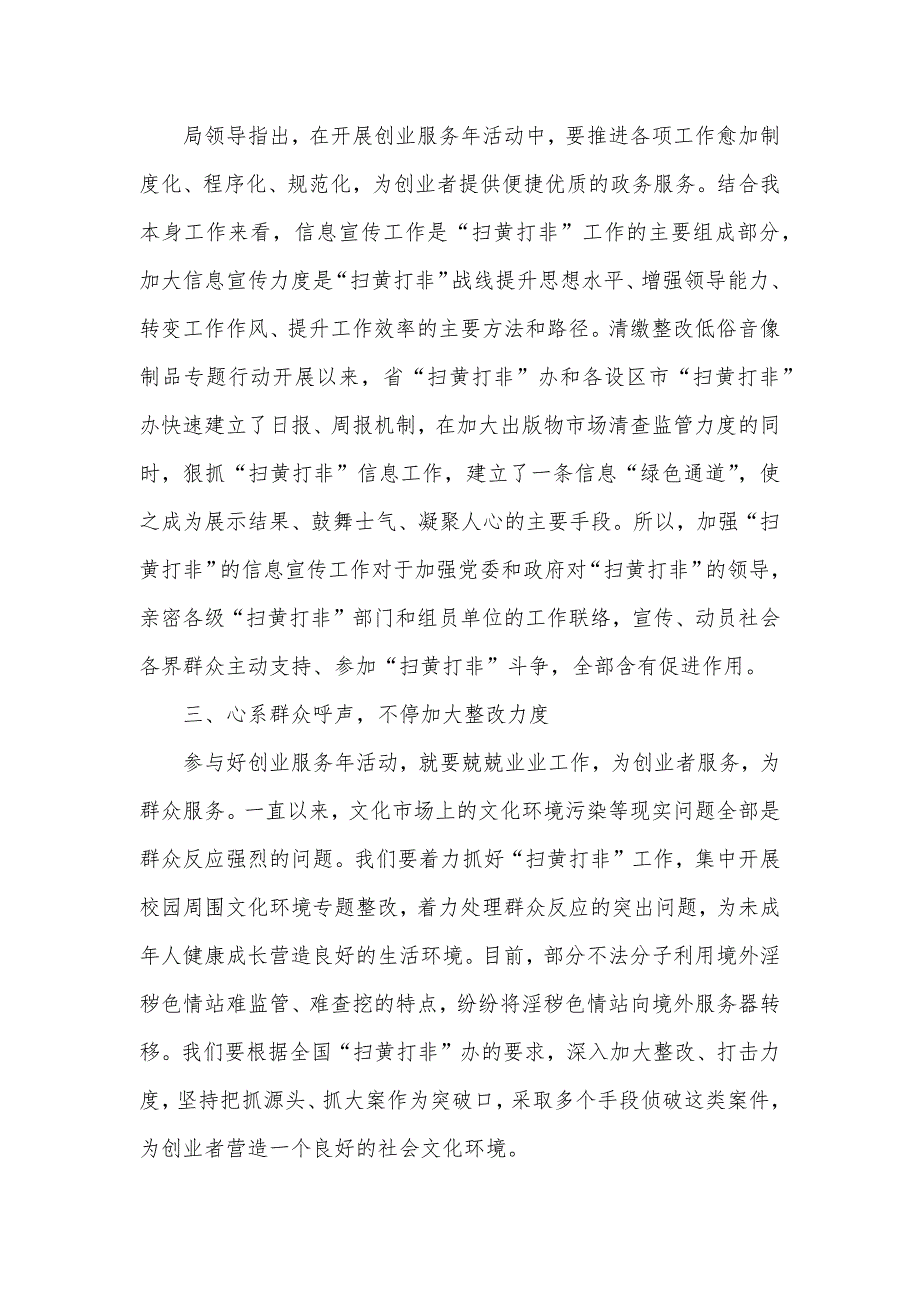 局领导指出，在开展创业服务年活动中，要推进各项工作愈加制
度化、程序化、规范化，为创业者提供便捷优质的政务服务。结合我
本身工作来看，信息宣传工作是“扫黄打非”工作的主要组成部分，
加大信息宣传力度是“扫黄打非”战线提升思想水平、增强领导能力、
转变工作作风、提升工作效率的主要方法和路径。清缴整改低俗音像
制品专题行动开展以来，省“扫黄打非”办和各设区市“扫黄打非”
办快速建立了日报、周报机制，在加大出版物市场清查监管力度的同
时，狠抓“扫黄打非”信息工作，建立了一条信息“绿色通道”，使
之成为展示结果、鼓舞士气、凝聚人心的主要手段。所以，加强“扫
黄打非”的信息宣传工作对于加强党委和政府对“扫黄打非”的领导，
亲密各级“扫黄打非”部门和组员单位的工作联络，宣传、动员社会
各界群众主动支持、参加“扫黄打非”斗争，全部含有促进作用。
三、心系群众呼声，不停加大整改力度
参与好创业服务年活动，就要兢兢业业工作，为创业者服务，为
群众服务。一直以来，文化市场上的文化环境污染等现实问题全部是
群众反应强烈的问题。我们要着力抓好“扫黄打非”工作，集中开展
校园周围文化环境专题整改，着力处理群众反应的突出问题，为未成
年人健康成长营造良好的生活环境。目前，部分不法分子利用境外淫
秽色情站难监管、难查挖的特点，纷纷将淫秽色情站向境外服务器转
移。我们要根据全国“扫黄打非”办的要求，深入加大整改、打击力
度，坚持把抓源头、抓大案作为突破口，采取多个手段侦破这类案件，
为创业者营造一个良好的社会文化环境。